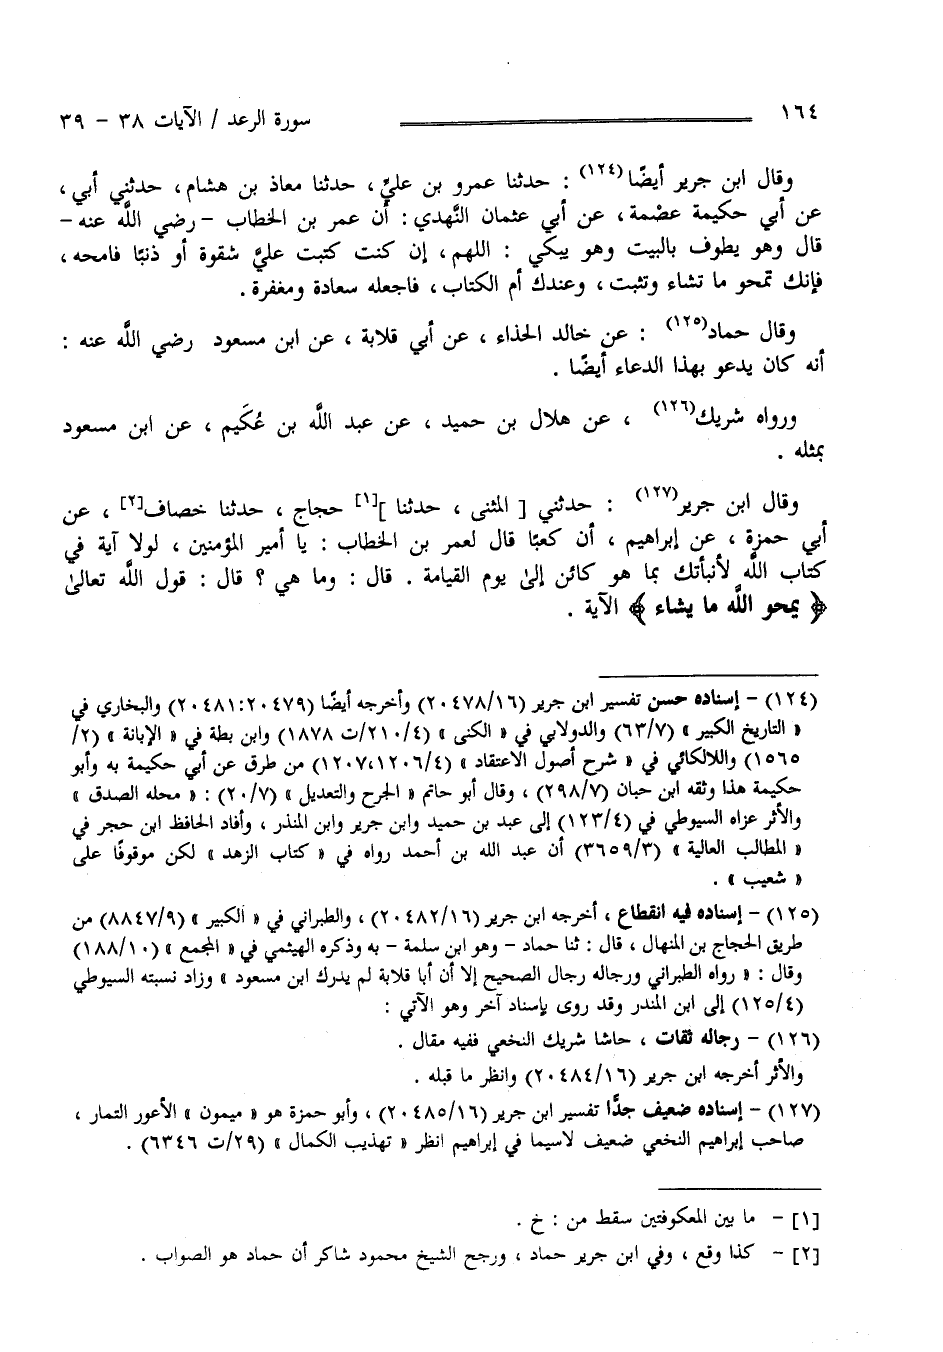 ١٦٤ سورة الرعد / الآيات ٣٨ - ٣٩
وقال ابن جرير أيضًا(١٢٤) : حدثنا عمرو بن عليٍّ ، حدثنا معاذ بن هشام ، حدثني أبي ،
عن أبي حكيمة عصْمة ، عن أبي عثمان النَّهدي : أن عمر بن الخطاب – رضي اللَّه عنه –
قال وهو يطوف بالبيت وهو يبكي : اللهم ، إن كنت كتبت عليَّ شقوة أو ذنبًا فامحه ،
فإنك تمحو ما تشاء وتثبت ، وعندك أم الكتاب ، فاجعله سعادة ومغفرة .
وقال حماد(١٢٥) : عن خالد الحذاء ، عن أبي قلابة ، عن ابن مسعود رضي اللَّه عنه :
أنه كان يدعو بهذا الدعاء أيضًا .
ورواه شريك(١٢٦) ، عن هلال بن حميد ، عن عبد اللَّه بن عُكَيم ، عن ابن مسعود
بمثله .
وقال ابن جرير(١٢٧) : حدثني [ المثنى ، حدثنا ][١] حجاج ، حدثنا خصاف[٢] ، عن
أبي حمزة ، عن إبراهيم ، أن كعبًا قال لعمر بن الخطاب : يا أمير المؤمنين ، لولا آية في
كتاب اللَّه لأنبأتك بما هو كائن إلىٰ يوم القيامة . قال : وما هي ؟ قال : قول اللَّه تعالىٰ
﴿ يمحو اللَّه ما يشاء ﴾ الآية .
(١٢٤) – إسناده حسن تفسير ابن جرير (٢٠٤٧٨/١٦) وأخرجه أيضًا (٢٠٤٧٩:٢٠٤٨١) والبخاري في
« التاريخ الكبير » (٦٣/٧) والدولابي في « الكنى » (٢١٠/٤/ت ١٨٧٨) وابن بطة في « الإبانة » (٢/
١٥٦٥) واللالكائي في « شرح أصول الاعتقاد » (١٢٠٧،١٢٠٦/٤) من طرق عن أبي حكيمة به وأبو
حكيمة هذا وثقه ابن حبان (٢٩٨/٧) ، وقال أبو حاتم « الجرح والتعديل » (٢٠/٧) : « محله الصدق »
والأثر عزاه السيوطي في (١٢٣/٤) إلى عبد بن حميد وابن جرير وابن المنذر ، وأفاد الحافظ ابن حجر في
« المطالب العالية » (٣٦٥٩/٣) أن عبد الله بن أحمد رواه في « كتاب الزهد » لكن موقوفًا على
« شعيب » .
(١٢٥) – إسناده فيه انقطاع ، أخرجه ابن جرير (٢٠٤٨٢/١٦) ، والطبراني في « الكبير » (٨٨٤٧/٩) من
طريق الحجاج بن المنهال ، قال : ثنا حماد – وهو ابن سلمة – به وذكره الهيثمي في « المجمع » (١٨٨/١٠)
وقال : « رواه الطبراني ورجاله رجال الصحيح إلا أن أبا قلابة لم يدرك ابن مسعود » وزاد نسبته السيوطي
(١٢٥/٤) إلى ابن المنذر وقد روى بإسناد آخر وهو الآتي :
(١٢٦) – رجاله ثقات ، حاشا شريك النخعي ففيه مقال .
والأثر أخرجه ابن جرير (٢٠٤٨٤/١٦) وانظر ما قبله .
(١٢٧) – إسناده ضعيف جدًّا تفسير ابن جرير (٢٠٤٨٥/١٦) ، وأبو حمزة هو « ميمون » الأعور التمار ،
صاحب إبراهيم النخعي ضعيف لاسيما في إبراهيم انظر « تهذيب الكمال » (٢٩/ت ٦٣٤٦) .
[١] – ما بين المعكوفتين سقط من : خ .
[٢] – كذا وقع ، وفي ابن جرير حماد ، ورجح الشيخ محمود شاكر أن حماد هو الصواب .